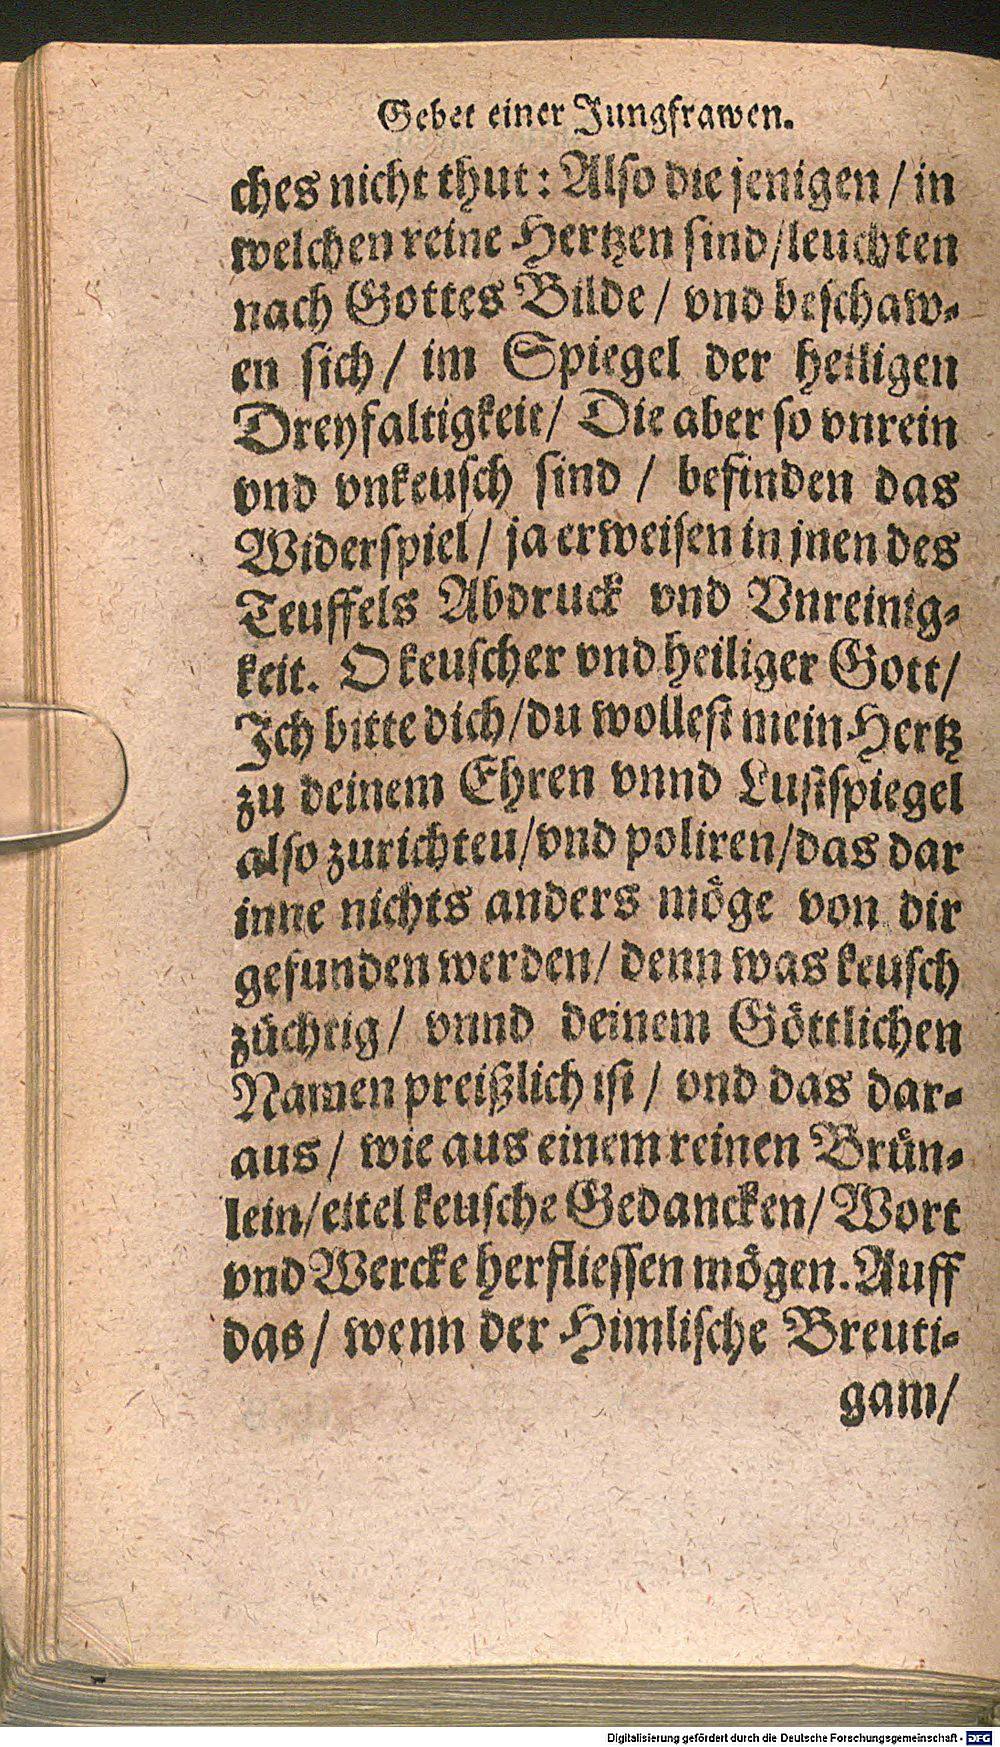 Gebet einer Jungfrawen.
ches nicht thut: Also die jenigen / in
welchen reine Hertzen sind/leuchten
nach Gottes Bilde / vnd beschaw-
en sich / im Spiegel der heiligen
Dreyfaltigkeit/ Die aber so vnrein
vnd vnkeusch sind / befinden das
Widerspiel / ja erweisen in jnen des
Teuffels Abdruck vnd Vnreinig-
keit. O keuscher vnd heiliger Gott/
Ich bitte dich/du wollest mein Hertz
zu deinem Ehren vnnd Lustspiegel
also zurichteu/vnd poliren/das dar
inne nichts anders möge von dir
gefunden werden/ denn was keusch
züchtig/ vnnd deinem Göttlichen
Namen preißlich ist / vnd das dar-
aus / wie aus einem reinen Brün-
lein/eitel keusche Gedancken/ Wort
vnd Wercke herfliessen mögen. Auff
das / wenn der Himlische Breuti-
gam/
Digitalisierung gefördert durch die Deutsche Forschungsgemeinschaft - DFG